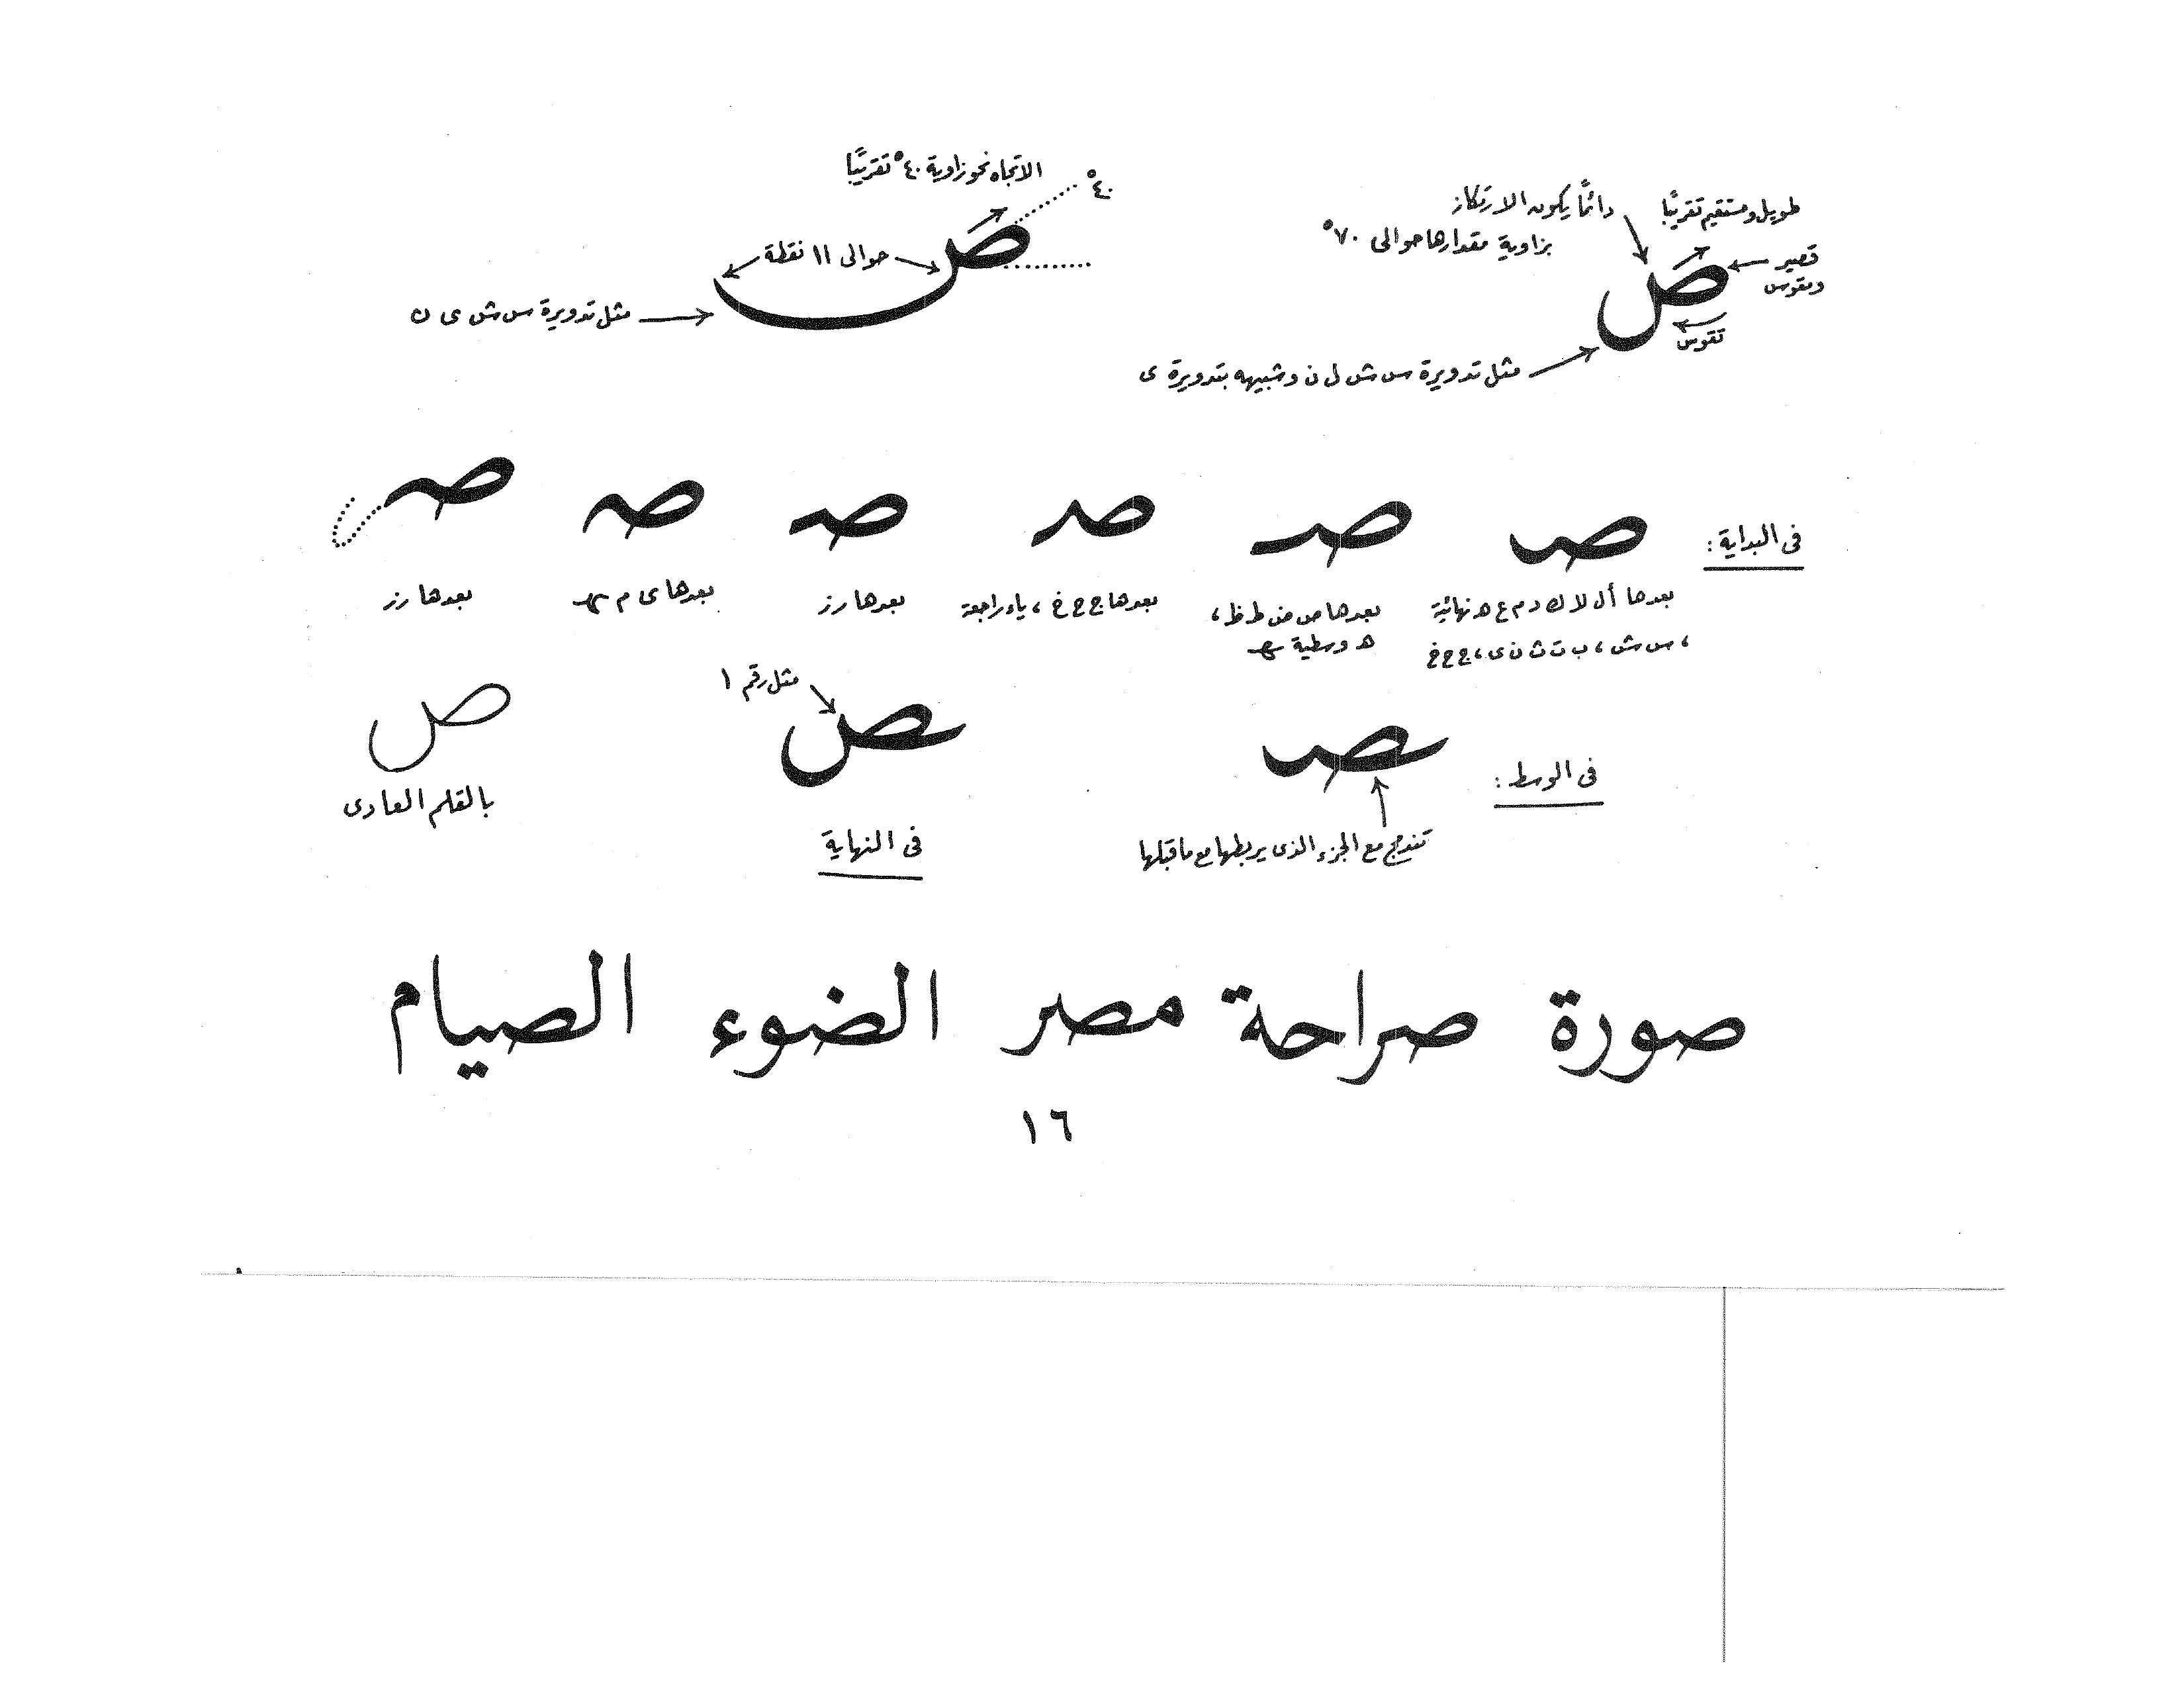 طويل ومستقيم تقريبًا
دائمًا يكون الارتكاز
بزاوية مقدارها حوالى ٧٠°
قصير
ومقوس
ص
تقوس
مثل تدويرة س ش ل ن وشبيهه بتدويرة ى
الاتجاه نحو زاوية ٤٠° تقريبًا
٤٠°
حوالى ١١ نقطة
ص
مثل تدويرة س ش ى ن
فى البداية :
صـ صـ صـ صـ صـ صـ
بعدها أ ل لا ك د م ع ه نهائية
، س ش ، ب ت ث ن ى ، ج ح خ
بعدها ص ض ط ظ ،
ه وسطية ـهـ
بعدها ج ح خ ، ياء راجعة
بعدها ر ز
بعدها ى م ـهـ
بعدها ر ز
فى الوسط :
ـصـ
تندمج مع الجزء الذى يربطها مع ما قبلها
مثل رقم ١
ـص
فى النهاية
ص
بالقلم العادى
صورة صراحة مصر الضوء الصيام
١٦